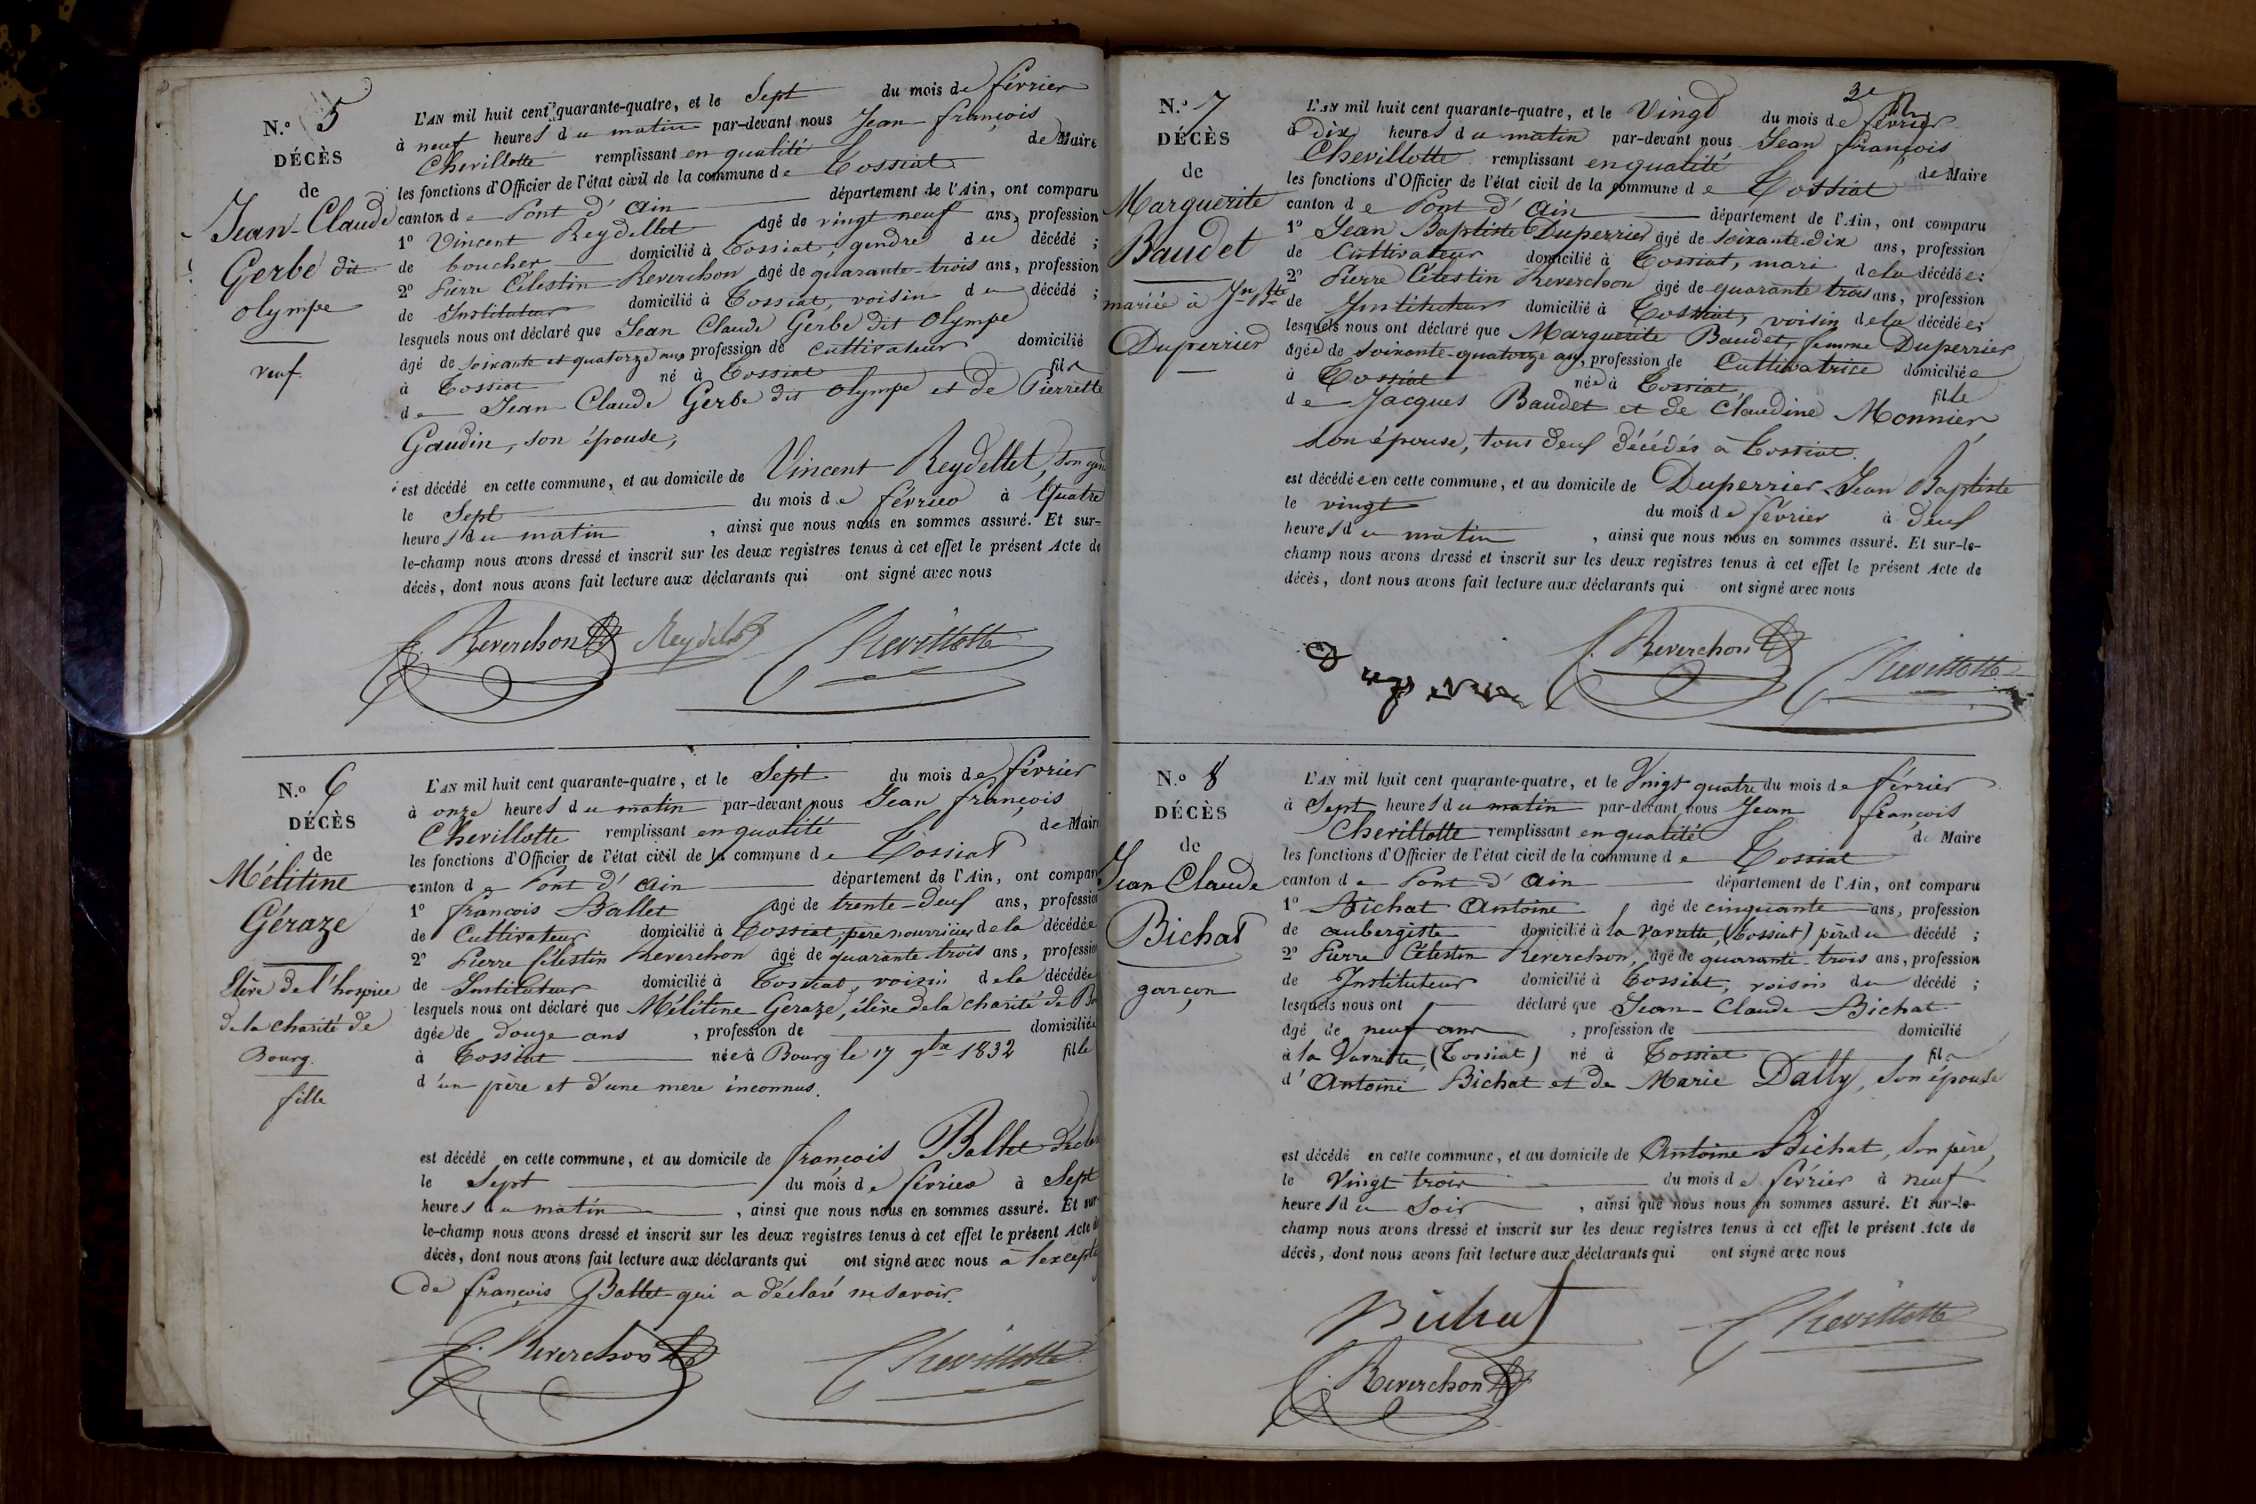 N.º 5
DÉCÈS
de
Jean-Claude
Gerbe dit
olympe
veuf.
L'AN mil huit cent quarante-quatre, et le Sept du mois de février
à neuf heures du matin par-devant nous Jean françois
Chevillotte remplissant en qualité de Maire
les fonctions d'Officier de l'état civil de la commune de Tossiat
canton de Pont d'ain département de l'Ain, ont comparu
1º Vincent Reydellet âgé de vingt neuf ans, profession
de boucher domicilié à Tossiat, gendre du décédé ;
2º Pierre Célestin Reverchon âgé de quarante-trois ans, profession
de Instituteur domicilié à Tossiat, voisin du décédé ;
lesquels nous ont déclaré que Jean Claude Gerbe dit olympe
âgé de soixante et quatorze ans profession de cultivateur domicilié
à Tossiat né à Tossiat fils
de Jean-Claude Gerbe dit olympe et de Pierrette
Gaudin, son épouse,
est décédé en cette commune, et au domicile de Vincent Reydellet, son
le Sept du mois de février à Quatre
heures du matin , ainsi que nous nous en sommes assuré. Et sur-
le-champ nous avons dressé et inscrit sur les deux registres tenus à cet effet le présent Acte de
décès, dont nous avons fait lecture aux déclarants qui ont signé avec nous
Reverchon Reydellet Chevillotte
N.º 6
DÉCÈS
de
Mélitine
Géraze
Elève de l'hospice
de la charité de
Bourg.
fille
L'AN mil huit cent quarante-quatre, et le Sept du mois de février
à onze heures du matin par-devant nous Jean françois
Chevillotte remplissant en qualité de Maire
les fonctions d'Officier de l'état civil de la commune de Tossiat
canton de Pont d'ain département de l'Ain, ont comparu
1º françois Ballet âgé de trente-deux ans, profession
de Cultivateur domicilié à Tossiat, père nourricier de la décédée
2º Pierre Célestin Reverchon âgé de quarante-trois ans, profession
de Instituteur domicilié à Tossiat, voisin de la décédée
lesquels nous ont déclaré que Mélitine Geraze, élève de la charité de
âgée de douze ans , profession de domiciliée
à Tossiat née à Bourg le 17 9bre 1832 fille
d'un père et d'une mère inconnus.
est décédé en cette commune, et au domicile de françois Ballet
le Sept du mois de février à Sept
heures du matin , ainsi que nous nous en sommes assuré. Et sur-
le-champ nous avons dressé et inscrit sur les deux registres tenus à cet effet le présent Acte de
décès, dont nous avons fait lecture aux déclarants qui ont signé avec nous à l'excepti
de françois Ballet qui a déclaré ne savoir.
Reverchon Chevillotte
N.º 7
DÉCÈS
de
Marguerite
Baudet
mariée à Jn Bte
Duperrier
L'AN mil huit cent quarante-quatre, et le Vingt du mois de février
à Dix heures du matin par-devant nous Jean françois
Chevillotte remplissant en qualité de Maire
les fonctions d'Officier de l'état civil de la commune de Tossiat
canton de Pont d'ain département de l'Ain, ont comparu
1º Jean Baptiste Duperrier âgé de soixante-dix ans, profession
de Cultivateur domicilié à Tossiat, mari de la décédée ;
2º Pierre Célestin Reverchon âgé de quarante trois ans, profession
de Instituteur domicilié à Tossiat, voisin de la décédée ;
lesquels nous ont déclaré que Marguerite Baudet, femme Duperrier
âgée de soixante-quatorze ans, profession de Cultivatrice domiciliée
à Tossiat née à Tossiat, fille
de Jacques Baudet et de Claudine Monnier
son épouse, tous deux décédés à Tossiat.
est décédée en cette commune, et au domicile de Duperrier Jean Baptiste
le vingt du mois de février à deux
heures du matin , ainsi que nous nous en sommes assuré. Et sur-le-
champ nous avons dressé et inscrit sur les deux registres tenus à cet effet le présent Acte de
décès, dont nous avons fait lecture aux déclarants qui ont signé avec nous
Duperrier Reverchon Chevillotte
N.º 8
DÉCÈS
de
Jean Claude
Bichat
garçon
L'AN mil huit cent quarante-quatre, et le Vingt quatre du mois de février
à Sept heures du matin par-devant nous Jean françois
Chevillotte remplissant en qualité de Maire
les fonctions d'Officier de l'état civil de la commune de Tossiat
canton de Pont d'ain département de l'Ain, ont comparu
1º Bichat Antoine âgé de cinquante ans, profession
de aubergiste domicilié à la Varrette, (Tossiat) père du décédé ;
2º Pierre Célestin Reverchon, âgé de quarante-trois ans, profession
de Instituteur domicilié à Tossiat, voisin du décédé ;
lesquels nous ont déclaré que Jean-Claude Bichat
âgé de neuf ans , profession de domicilié
à la Varrette, (Tossiat) né à Tossiat fils
d'Antoine Bichat et de Marie Dally, son épouse
est décédé en cette commune, et au domicile de Antoine Bichat, son père,
le Vingt trois du mois de février à neuf
heures du Soir , ainsi que nous nous en sommes assuré. Et sur-le-
champ nous avons dressé et inscrit sur les deux registres tenus à cet effet le présent Acte de
décès, dont nous avons fait lecture aux déclarants qui ont signé avec nous
Bichat Chevillotte
Reverchon